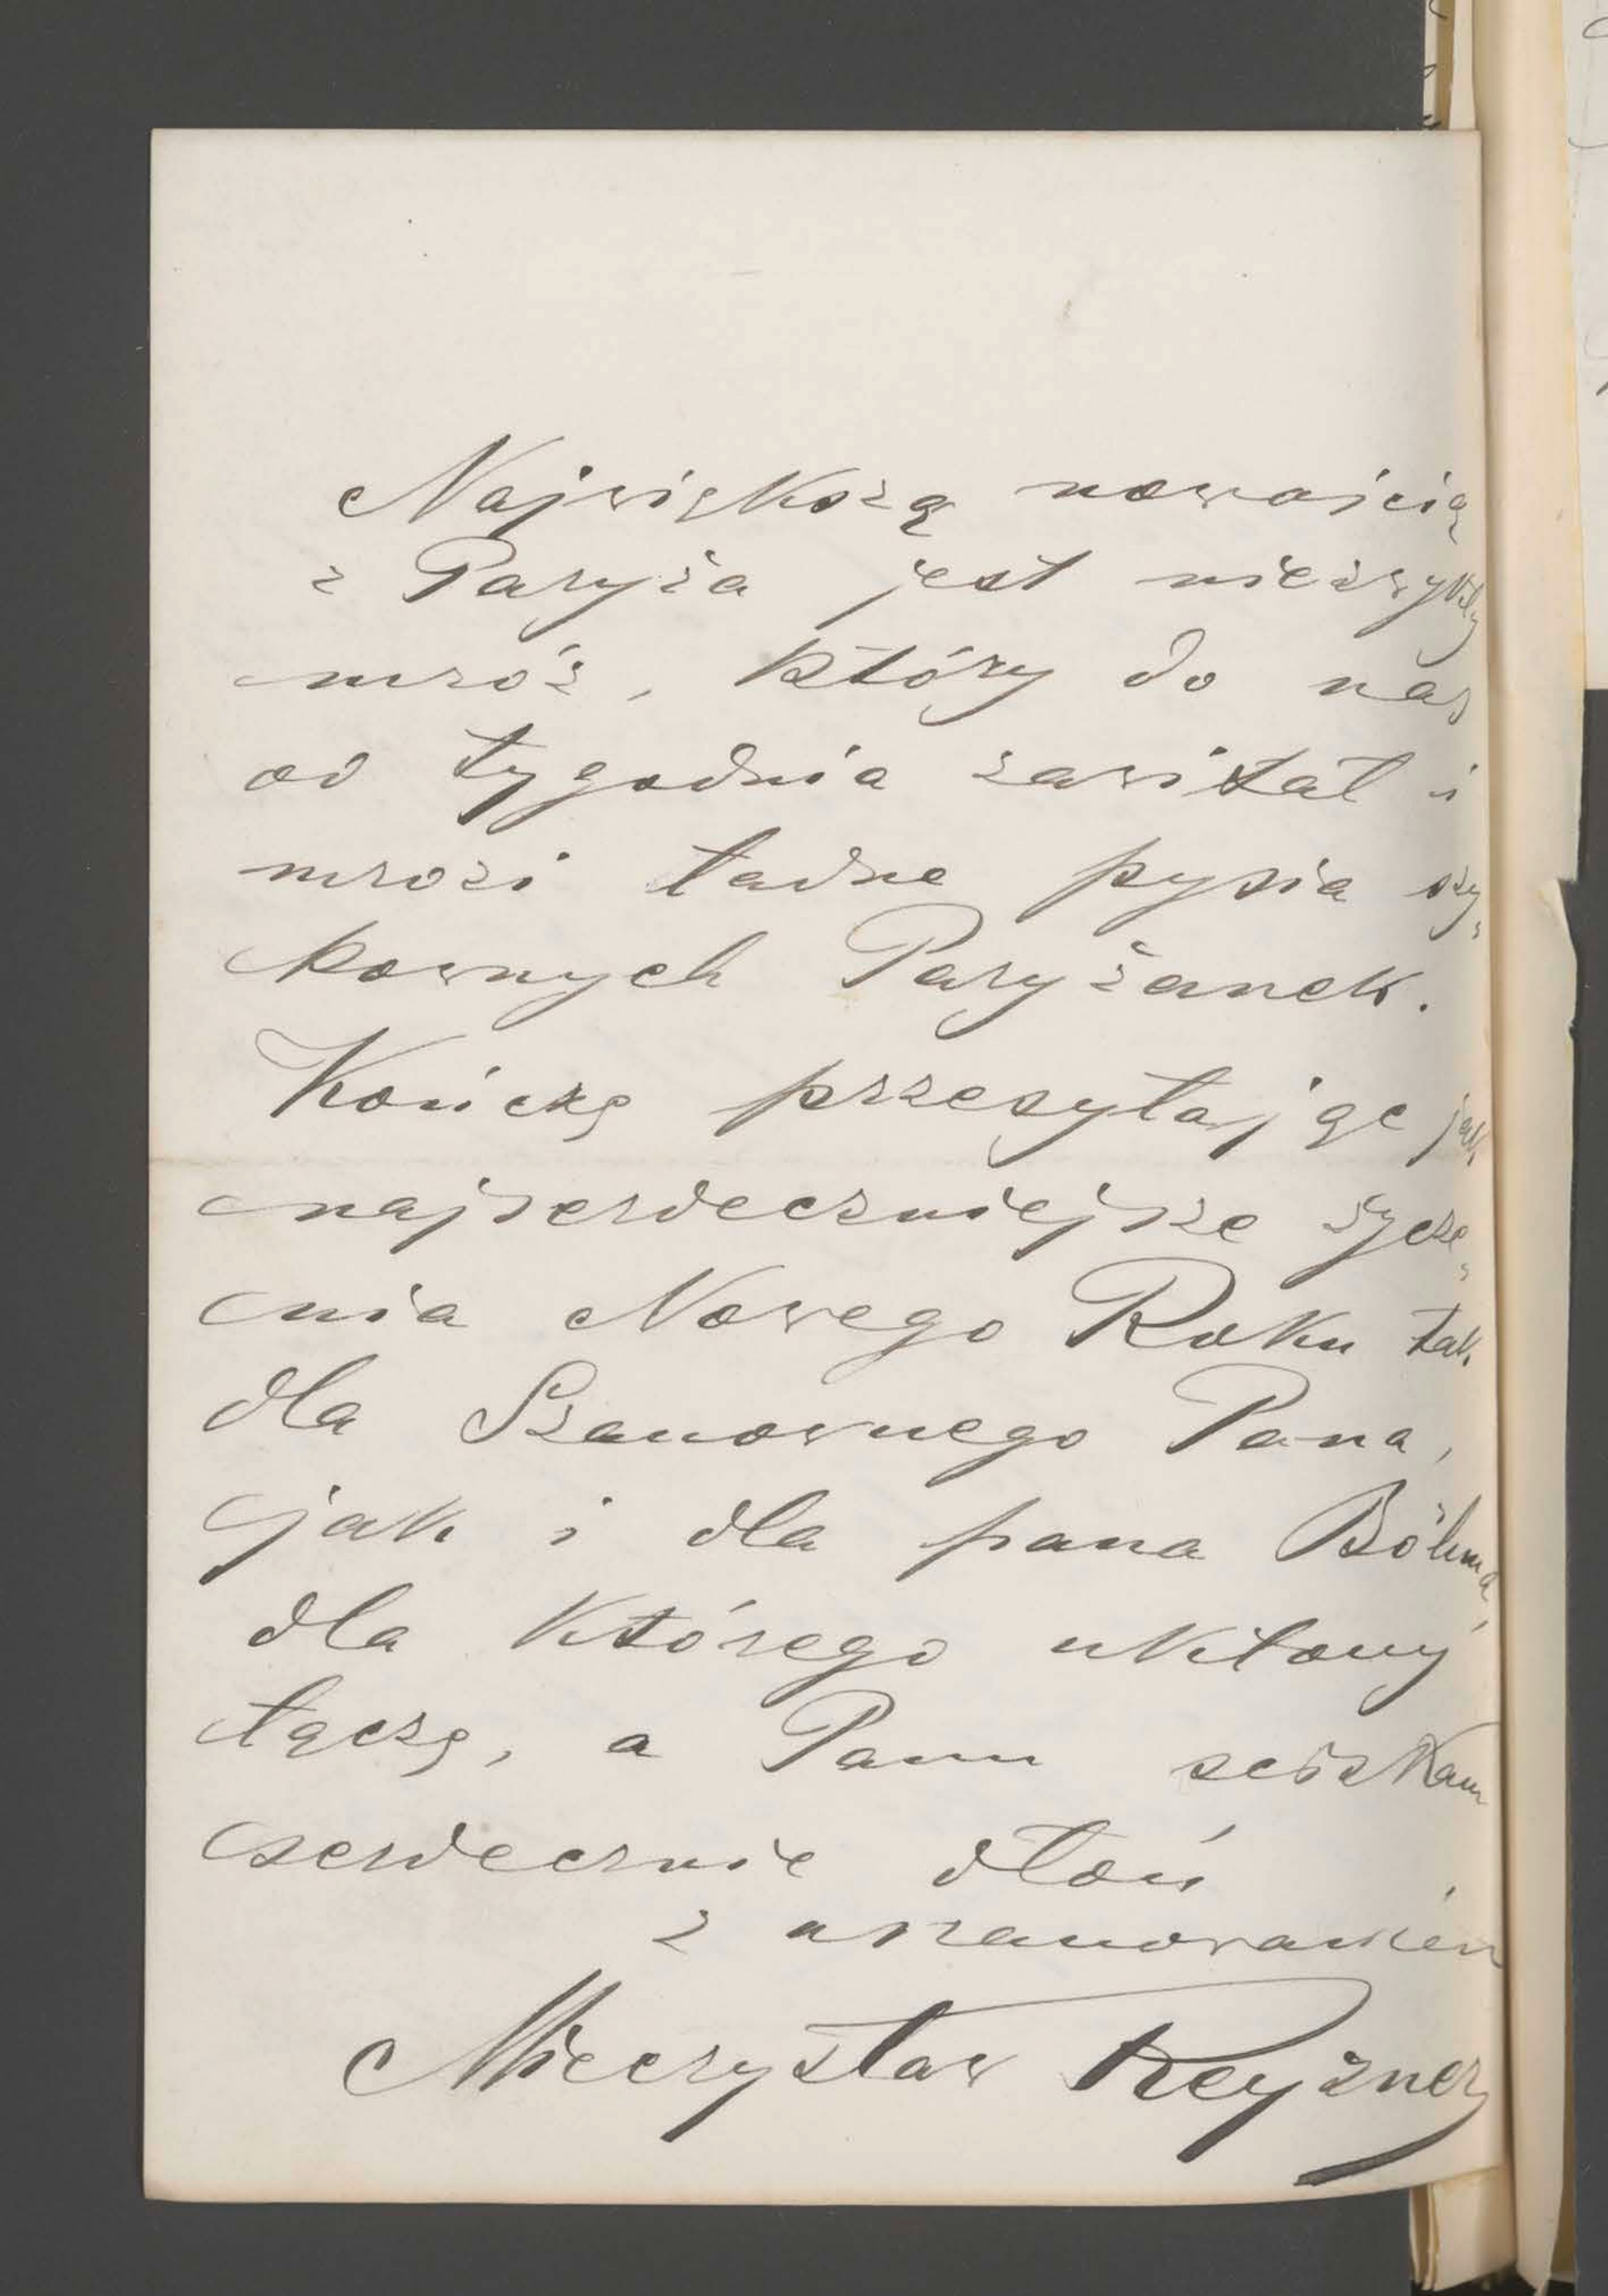 Największą nowością
z Paryża jest niezwykły
mróz, który do nas
od tygodnia zawitał i
mrozi ładne pysia szy-
kownych Paryżanek.
Kończę przesyłając jak
najserdeczniejsze życze-
nia Nowego Roku tak
dla Szanownego Pana,
jak i dla pana Böhma,
dla którego ukłony
łączę, a Panu ściskam
serdecznie dłoń
z uszanowaniem
Mieczysław Reyzner